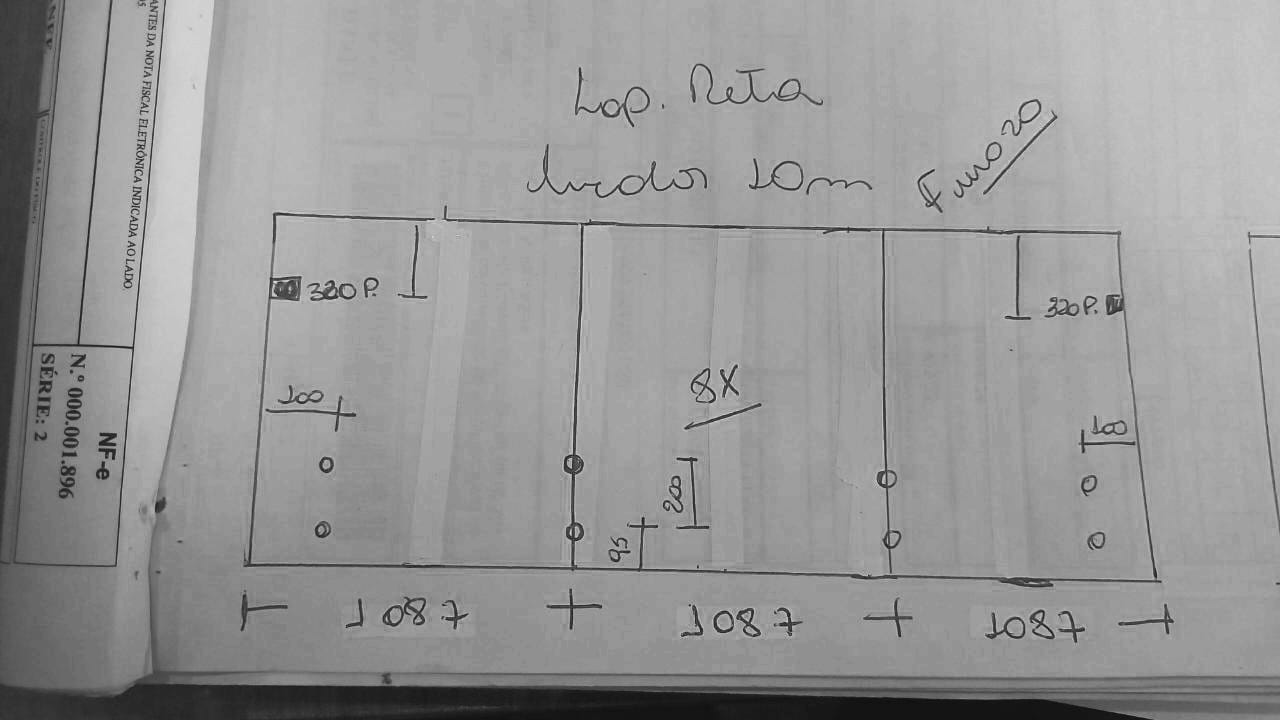 ANTES DA NOTA FISCAL ELETRÔNICA INDICADA AO LADO.
NF-e
N.º 000.001.896
SÉRIE: 2
Lap. Reta
10m
Furo 20
320 P.
320 P.
100
8X
100
200
95
1087
1087
1087